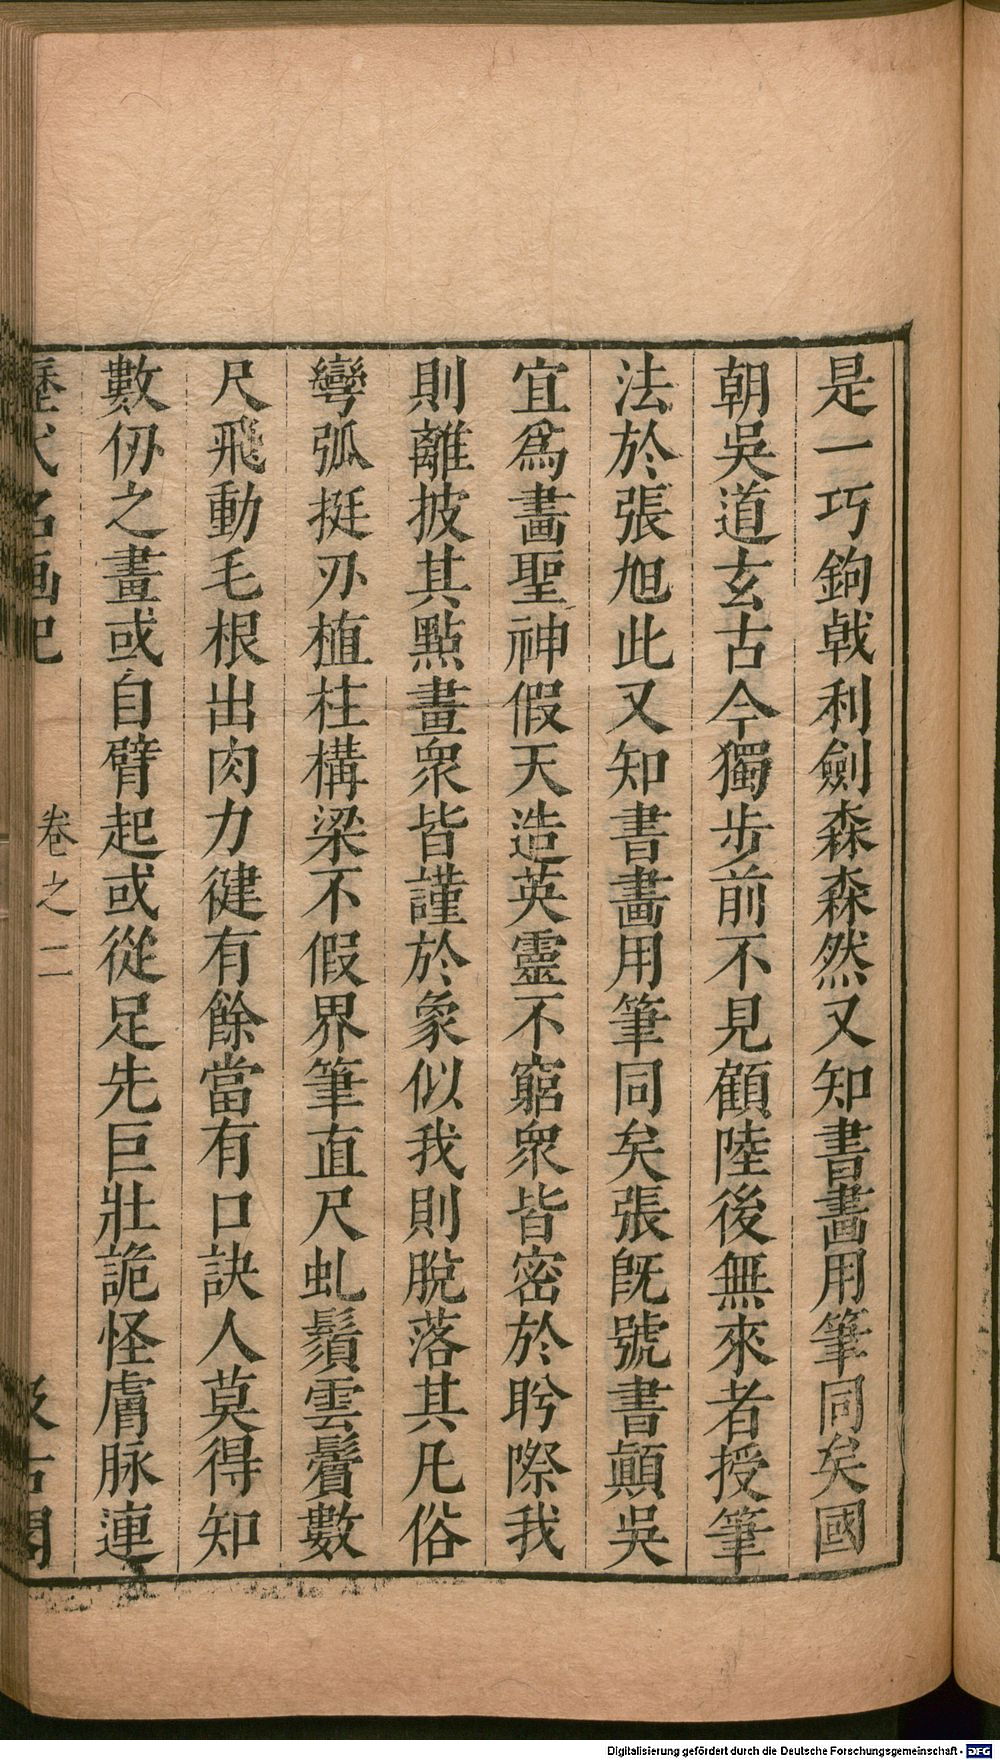 是一巧鉤戟利劍森森然又知書畵用筆同矣國
朝吳道玄古今獨步前不見顧陸後無來者授筆
法於張旭此又知書畵用筆同矣張旣號書顛吳
宜爲畵聖神假天造英靈不窮衆皆密於盻際我
則離披其點畫衆皆謹於象似我則脫落其凡俗
彎弧挺刃植柱構梁不假界筆直尺虬鬚雲鬢數
尺飛動毛根出肉力健有餘當有口訣人莫得知
數仞之畫或自臂起或從足先巨壯詭怪膚脉連
歷代名画记
卷之二
汲古閣
Digitalisierung gefördert durch die Deutsche Forschungsgemeinschaft - DFG